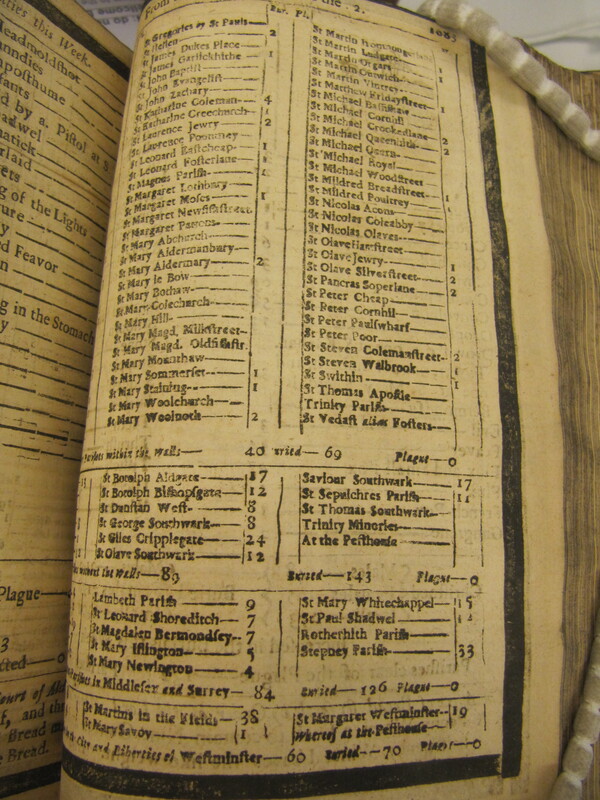 From
2.
Bur. Pl.
St Gregories by St Pauls 2
St Hellen
St James Dukes Place
St James Garlickhithe 1
St John Baptist
St John Evangelist
St John Zachary
St Katharine Coleman 4
St Katharine Creechurch 1
St Laurence Jewry 2
St Laurence Pountney
St Leonard Eastcheap 1
St Leonard Fosterlane
St Magnus Parish
St Margaret Lothbury
St Margaret Moses 1
St Margaret Newfishstreet
St Margaret Pattons
St Mary Abchurch
St Mary Aldermanbury
St Mary Aldermary 2
St Mary le Bow
St Mary Bothaw
St Mary Colechurch
St Mary Hill
St Mary Magd. Milkstreet
St Mary Magd. Oldfishstr.
St Mary Mounthaw
St Mary Sommerset 1
St Mary Staining 1
St Mary Woolchurch
St Mary Woolnoth 2
St Martin Ludgate
St Martin Orgars
St Martin Outwich 1
St Martin Vintrey
St Matthew Fridaystreet 1
St Michael Bassishaw
St Michael Cornhil
St Michael Crookedlane 2
St Michael Queenhith 2
St Michael Quern
St Michael Royal
St Michael Woodstreet
St Mildred Breadstreet
St Mildred Poultrey 1
St Nicolas Acons
St Nicolas Coleabby
St Nicolas Olaves
St Olave Hartstreet
St Olave Jewry
St Olave Silverstreet 2
St Pancras Soperlane 2
St Peter Cheap
St Peter Cornhil
St Peter Paulswharf
St Peter Poor
St Steven Colemanstreet 2
St Steven Walbrook
St Swithin 1
St Thomas Apostle
Trinity Parish
St Vedast alias Fosters
within the Walls 40 69 Plague 0
St Botolph Aldgate 17
St Botolph Bishopsgate 12
St Dunstan West 8
St George Southwark 8
St Giles Cripplegate 24
St Olave Southwark 12
Saviour Southwark 17
St Sepulchres Parish 11
St Thomas Southwark
Trinity Minories
At the Pesthouse
without the Walls 89 Buried 143 Plague 0
Lambeth Parish 9
St Leonard Shoreditch 7
St Magdalen Bermondsey 7
St Mary Islington 5
St Mary Newington 4
St Mary Whitechappel 15
St Paul Shadwel
Rotherhith Parish
Stepney Parish 33
in Middlesex and Surrey 84 Buried 126 Plague 0
St Martins in the Fields 38
St Mary Savoy 1
St Margaret Westminster 19
Whereof at the Pesthouse
City and Liberties of Westminster 60 Buried 70 Plague 0
this Week.
Headmoldshot
by a Pistol at
of the Lights
Feavor
in the Stomach
Plague
3
Court of
and the
Bread
Bread.